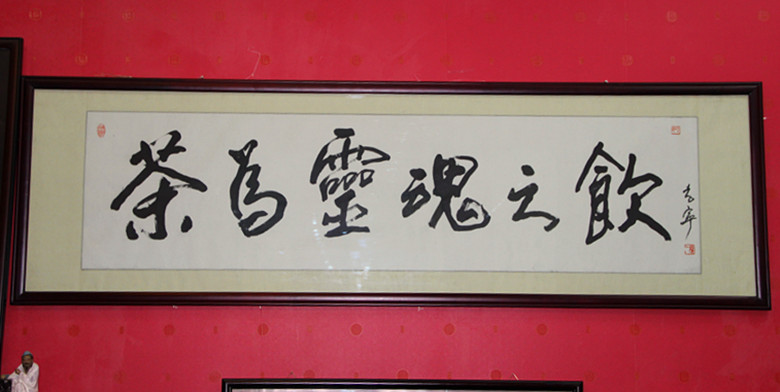 茶為靈魂之飲